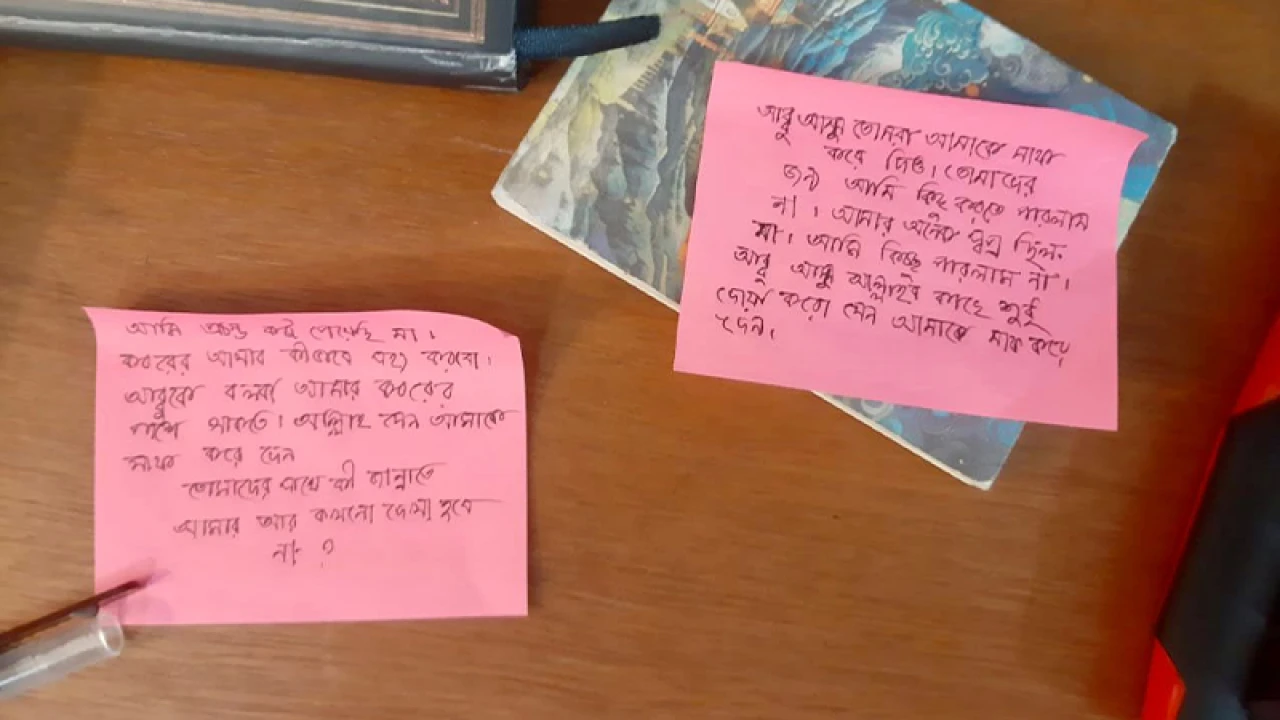 আমি প্রচন্ড কষ্ট পেয়েছি মা।
কবরের আমার কীভাবে সহ্য করবো।
আব্বুকে বলবা আমার কবরের
পাশে থাকতে। আল্লাহ যেন আমাকে
মাফ করে দেন
তোমাদের সাথে কী জান্নাতে
আমার আর কখনো দেখা হবে
না?
আব্বু আম্মু তোমরা আমাকে মাফ
করে দিও। তোমাদের
জন্য আমি কিছু করতে পারলাম
না। আমার অনেক স্বপ্ন ছিল
মা। আমি কিচ্ছু পারলাম না।
আব্বু আম্মু আল্লাহর কাছে শুধু
দোয়া করো যেন আমাকে মাফ করে
দেন।